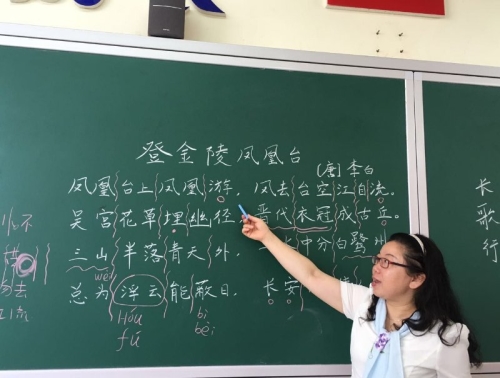 登金陵凤凰台
[唐]李白
凤凰台上凤凰游，凤去台空江自流。
吴宫花草埋幽径，晋代衣冠成古丘。
三山半落青天外，水中分白鹭洲
wèi
总为浮云能蔽日，长安
Hóu bì
fú bèi
长
歌
行